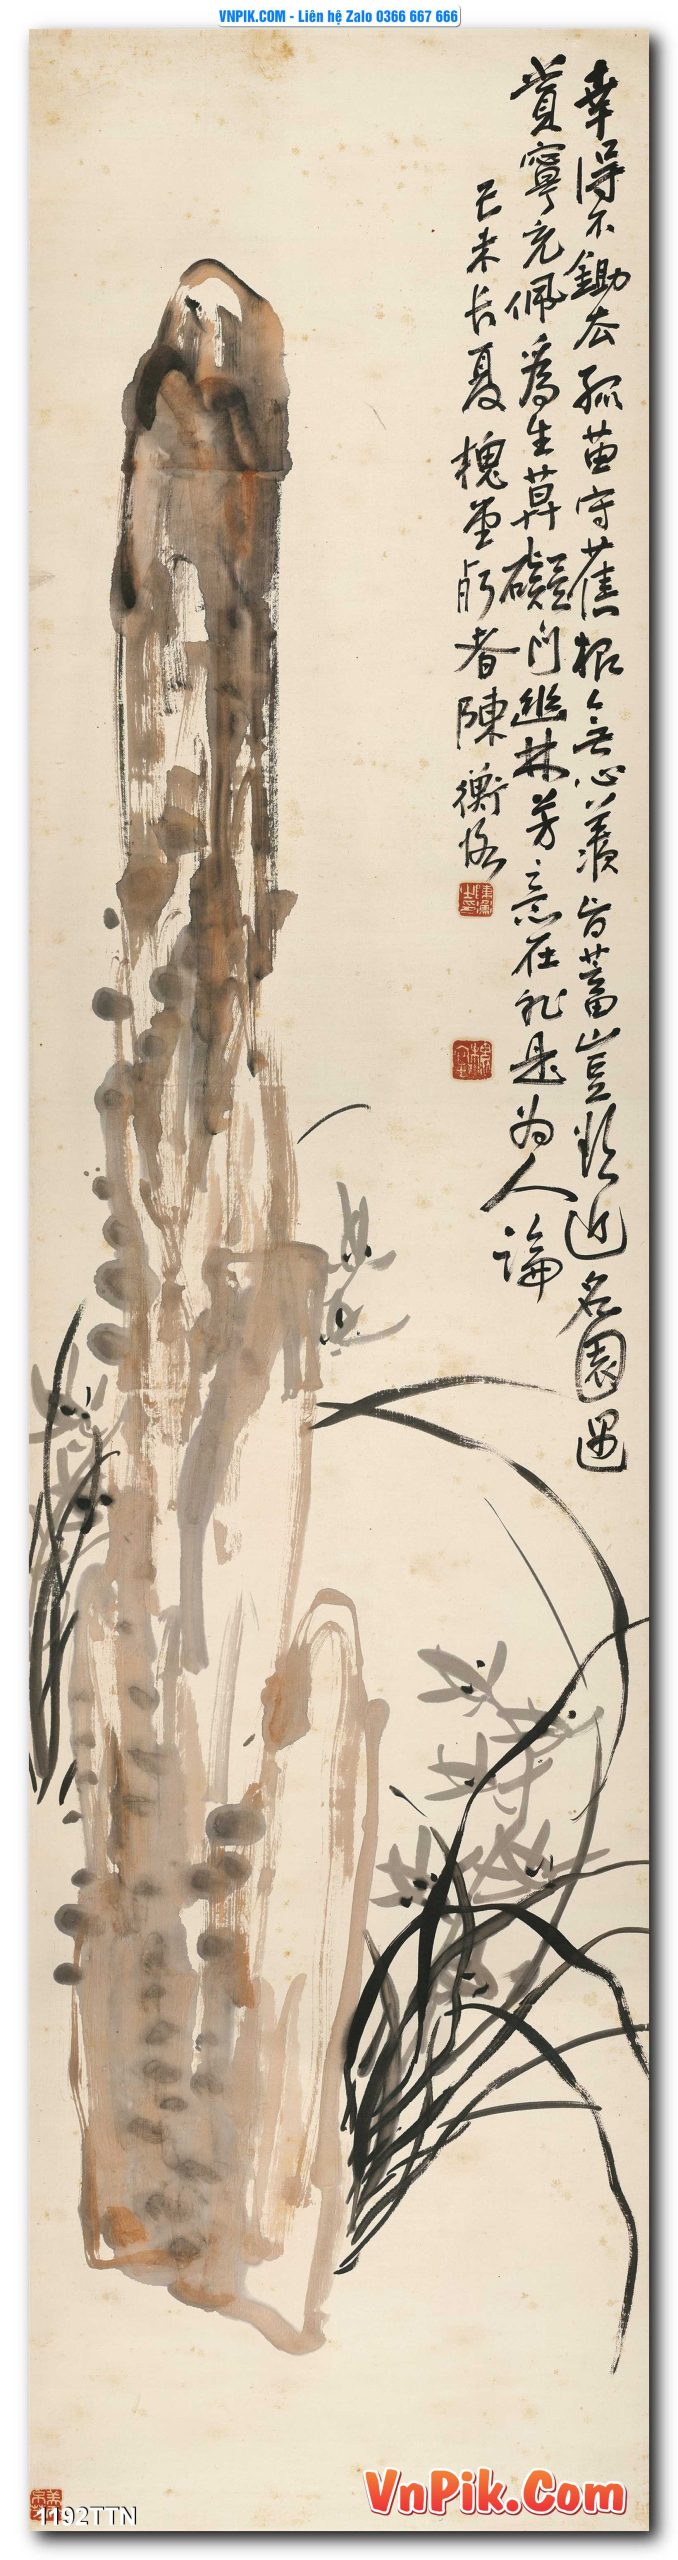 VNPIK.COM - Liên hệ Zalo 0366 667 666
幸得不鋤去孤苗守舊根無心羨旨蓄豈近名園遇
賞寧充佩為生莫礙門幽林芳意在非是為人論
己未長夏槐堂朽者陳衡恪
1192TTN
VnPik.Com